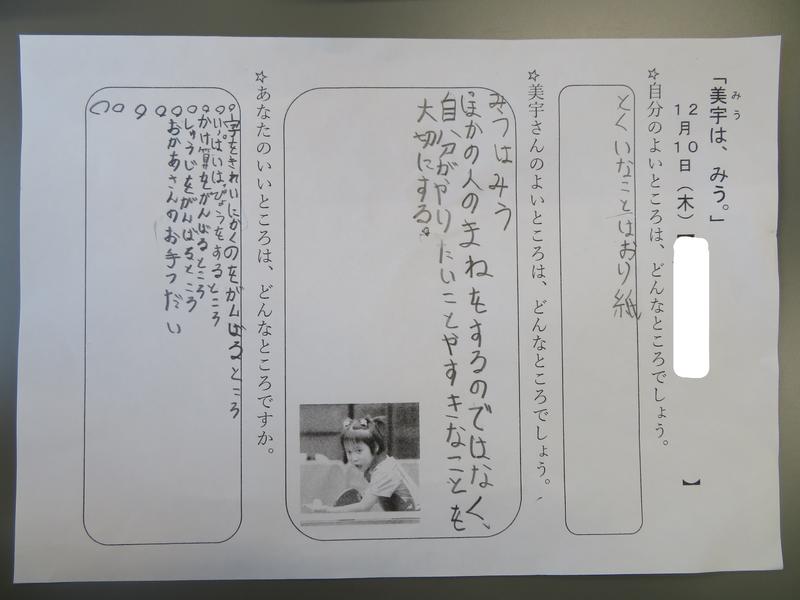 「美宇は、みう。」
みう
12月10日（木）【 】
☆自分のよいところは、どんなところでしょう。
とくいなことはおり紙
☆美宇さんのよいところは、どんなところでしょう。
みうはみう
ほかの人のまねをするのではなく、
自分がやりたいことやすきなことも
大切にする。
☆あなたのいいところは、どんなところですか。
○字をきれいにかくのをがんばるところ
○いっぱいはっぴょうをするところ
○かけ算をがんばるところ
○しゅうじをがんばるところ
○おかあさんのお手つだい